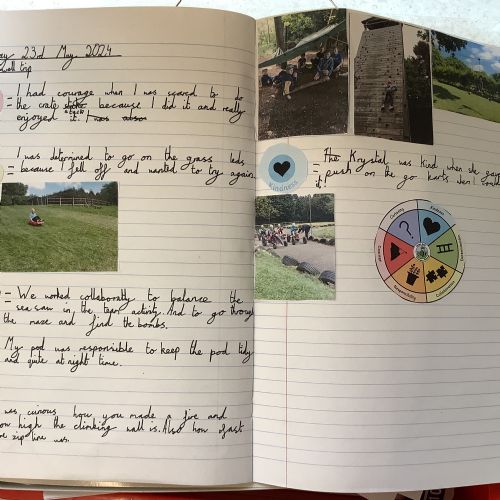 ay 23rd May 2024
well trip
I had courage when I was scared to do
the crate stack because I did it and really
enjoyed it. I was also
I was determined to go on the grass leds
because I fell off and wanted to try again.
We worked collaboratly to balance the
seesaw in the team activity. And to go through
the maze and find the bombs.
My pod was responsible to keep the pod tidy
and quite at night time.
was curious how you made a fire and
ow high the climbing wall is. Also how fast
e zip line was.
Kindness
The Krystal was kind when she gave
push on the go karts when I
it!
Curiosity
Kindness
Courage
Responsibility